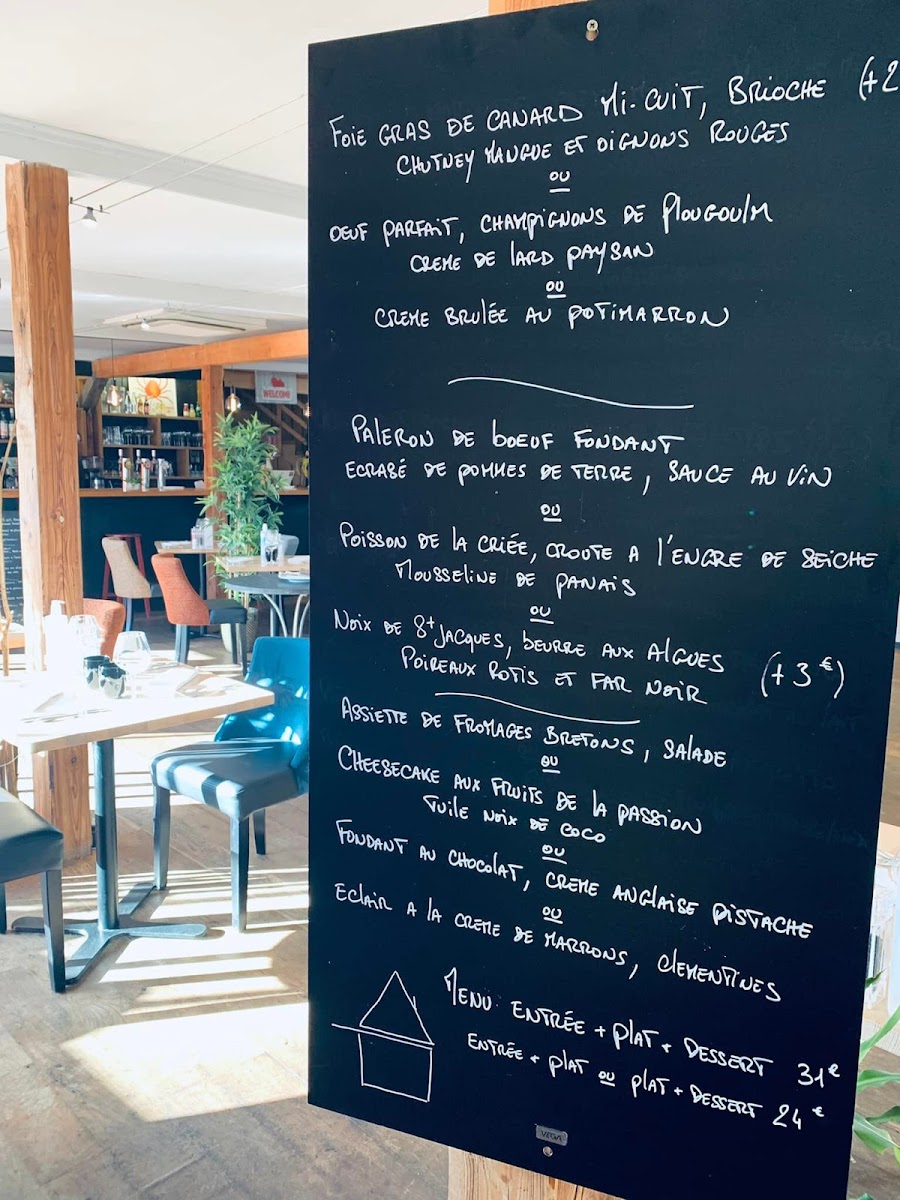 WELCOME
FOIE GRAS DE CANARD MI-CUIT, BRIOCHE (+2
CHUTNEY MANGUE ET OIGNONS ROUGES
OU
OEUF PARFAIT, CHAMPIGNONS DE PLOUGOULM
CREME DE LARD PAYSAN
OU
CREME BRULÉE AU POTIMARRON
PALERON DE BOEUF FONDANT
ECRASÉ DE POMMES DE TERRE, SAUCE AU VIN
OU
POISSON DE LA CRIÉE, CROUTE A L'ENCRE DE SEICHE
MOUSSELINE DE PANAIS
OU
NOIX DE St JACQUES, BEURRE AUX ALGUES
POIREAUX ROTIS ET FAR NOIR (+3€)
ASSIETTE DE FROMAGES BRETONS, SALADE
OU
CHEESECAKE AUX FRUITS DE LA PASSION
TUILE NOIX DE COCO
OU
FONDANT AU CHOCOLAT, CREME ANGLAISE PISTACHE
OU
ECLAIR A LA CREME DE MARRONS, CLEMENTINES
MENU: ENTRÉE + PLAT + DESSERT 31€
ENTRÉE + PLAT OU PLAT + DESSERT 24€